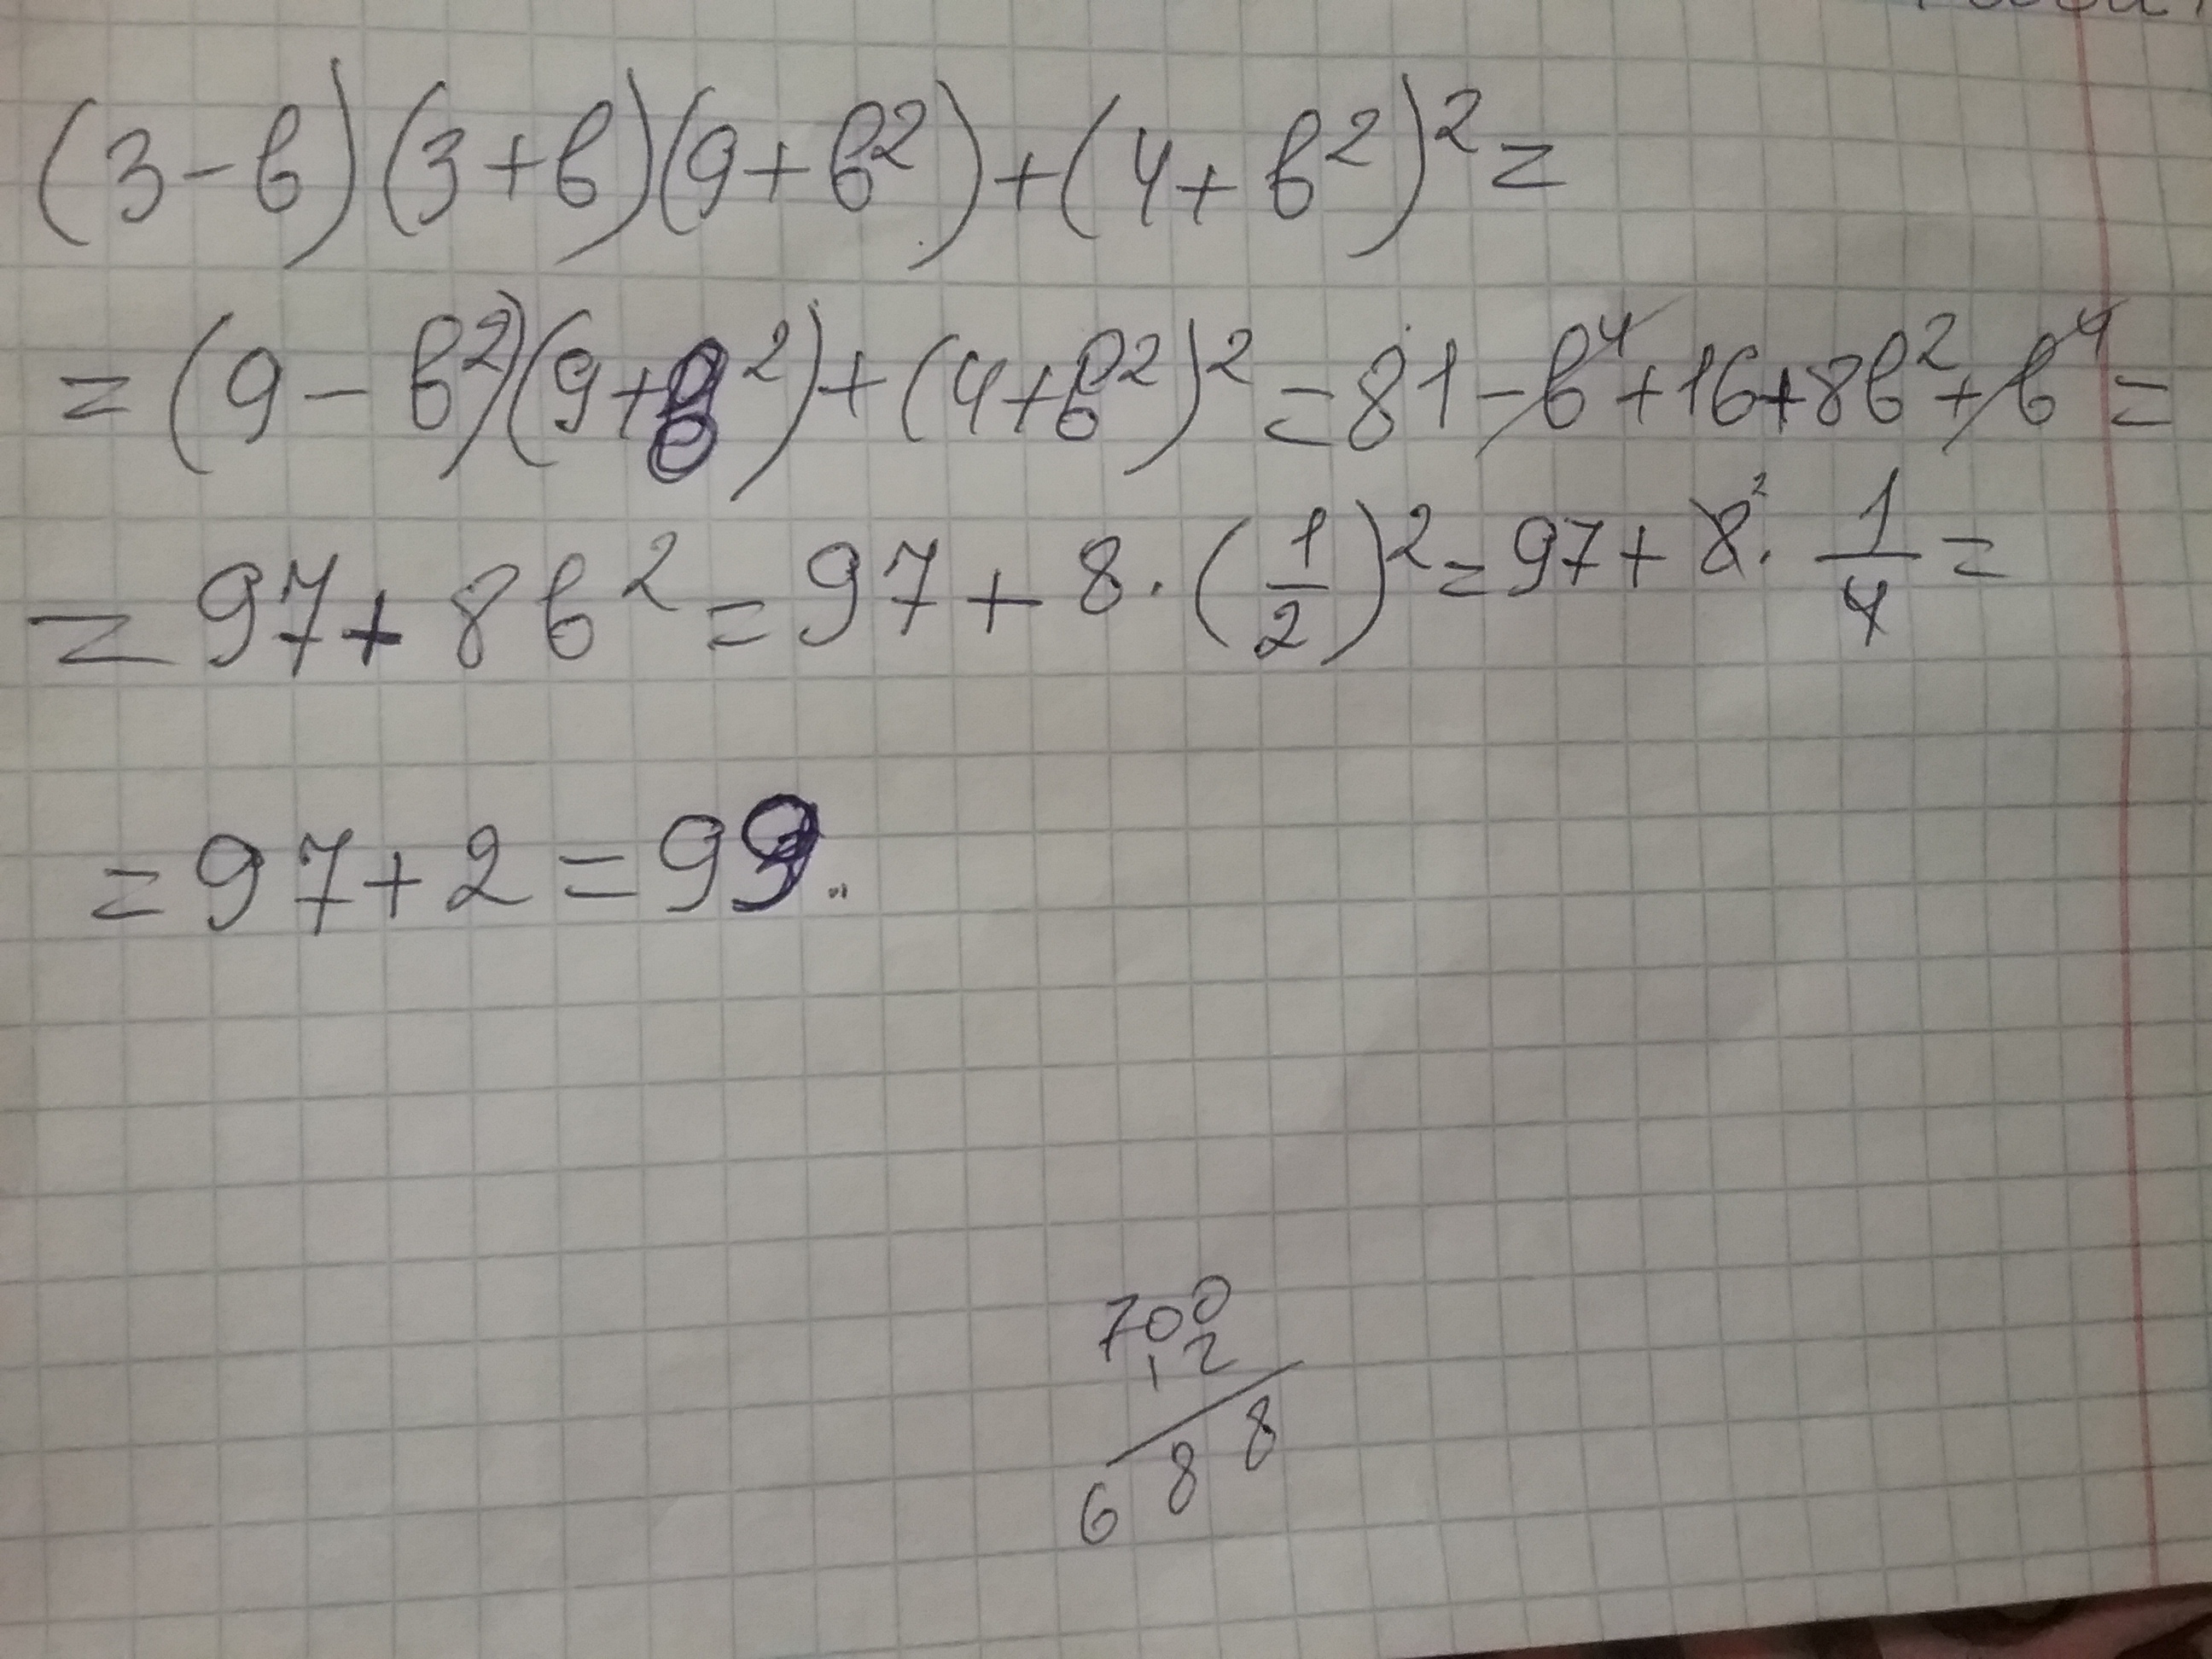 (3-в)(3+в)(9+в²)+(4+в²)²=
=(9-в²)(9+в²)+(4+в²)²=81-в⁴+16+8в²+в⁴=
=97+8в²=97+8·(1/2)²=97+8²·1/4=
=97+2=99.
700
12
688